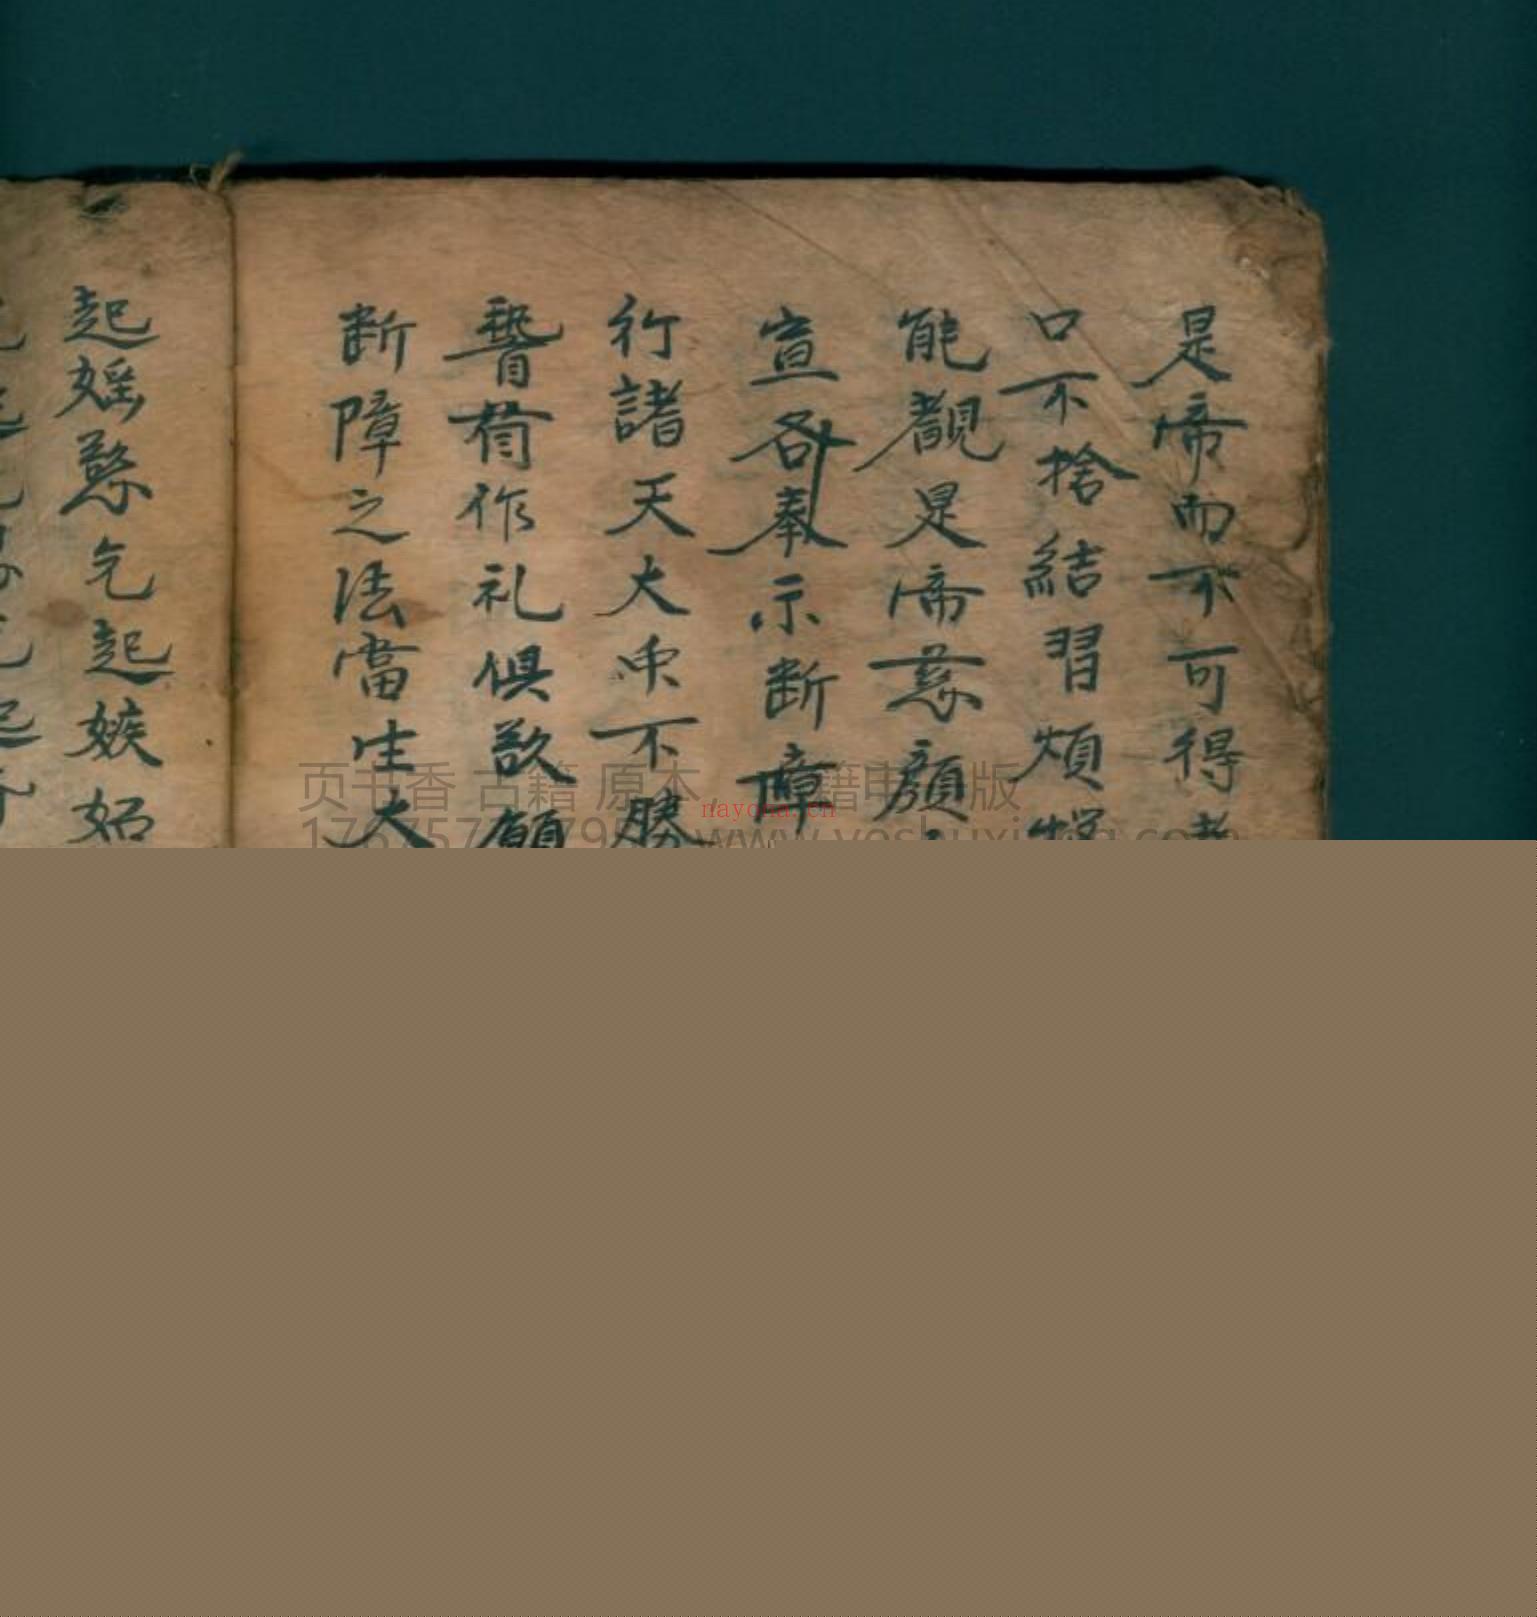 是帝而不可得者
口不捨結習煩惱
能覩是帝慈顔
宣各奉示断障
行諸天大衆不勝
瞀荷作礼俱歆願
断障之法當生大
起婬慾乞起嫉妬
页书香 古籍 原本
nayona.cn
www.yeshuxiang.com